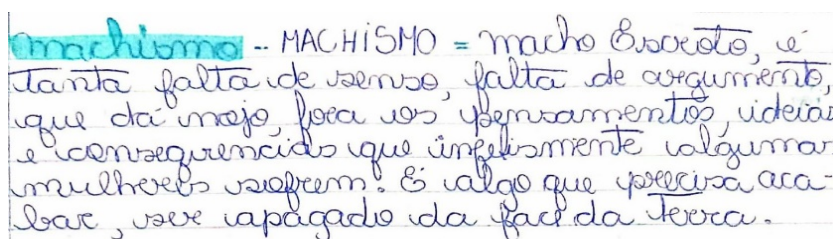 machismo - MACHISMO = macho Escroto, é
tanta falta de senso, falta de argumento,
que dá nojo, fora os pensamentos, ideias
e consequencias que infelismente algumas
mulheres sofrem. É algo que precisa aca-
bar, ser apagado da face da Terra.